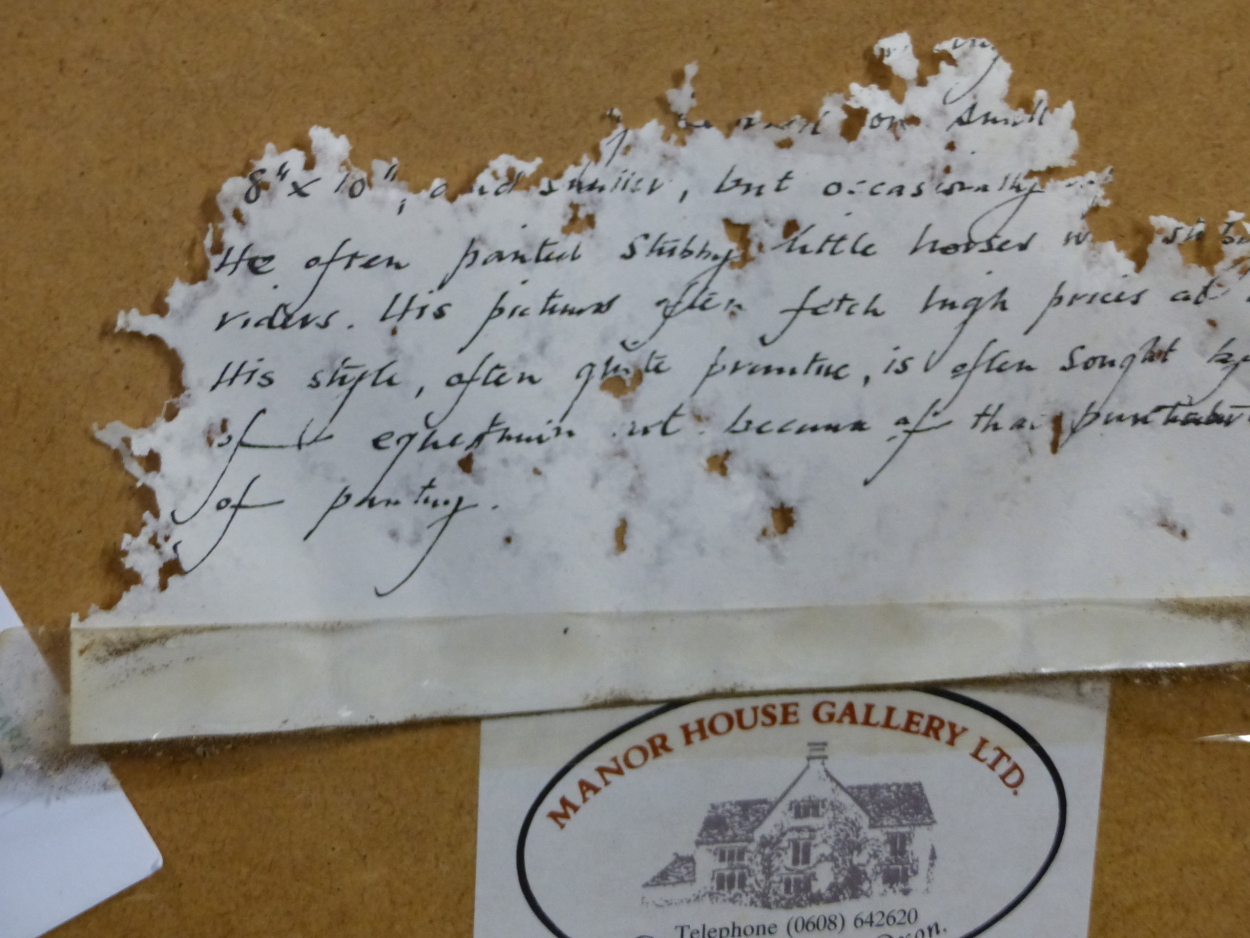 on small
8"x 10", and smaller, but occasionally
He often painted Stubby little horses
riders. His pictures often fetch high prices at
His style, often quite primitive, is often sought by
of equestrian art because of
of painting.
MANOR HOUSE GALLERY LTD.
Telephone (0608) 642620
Oxon.